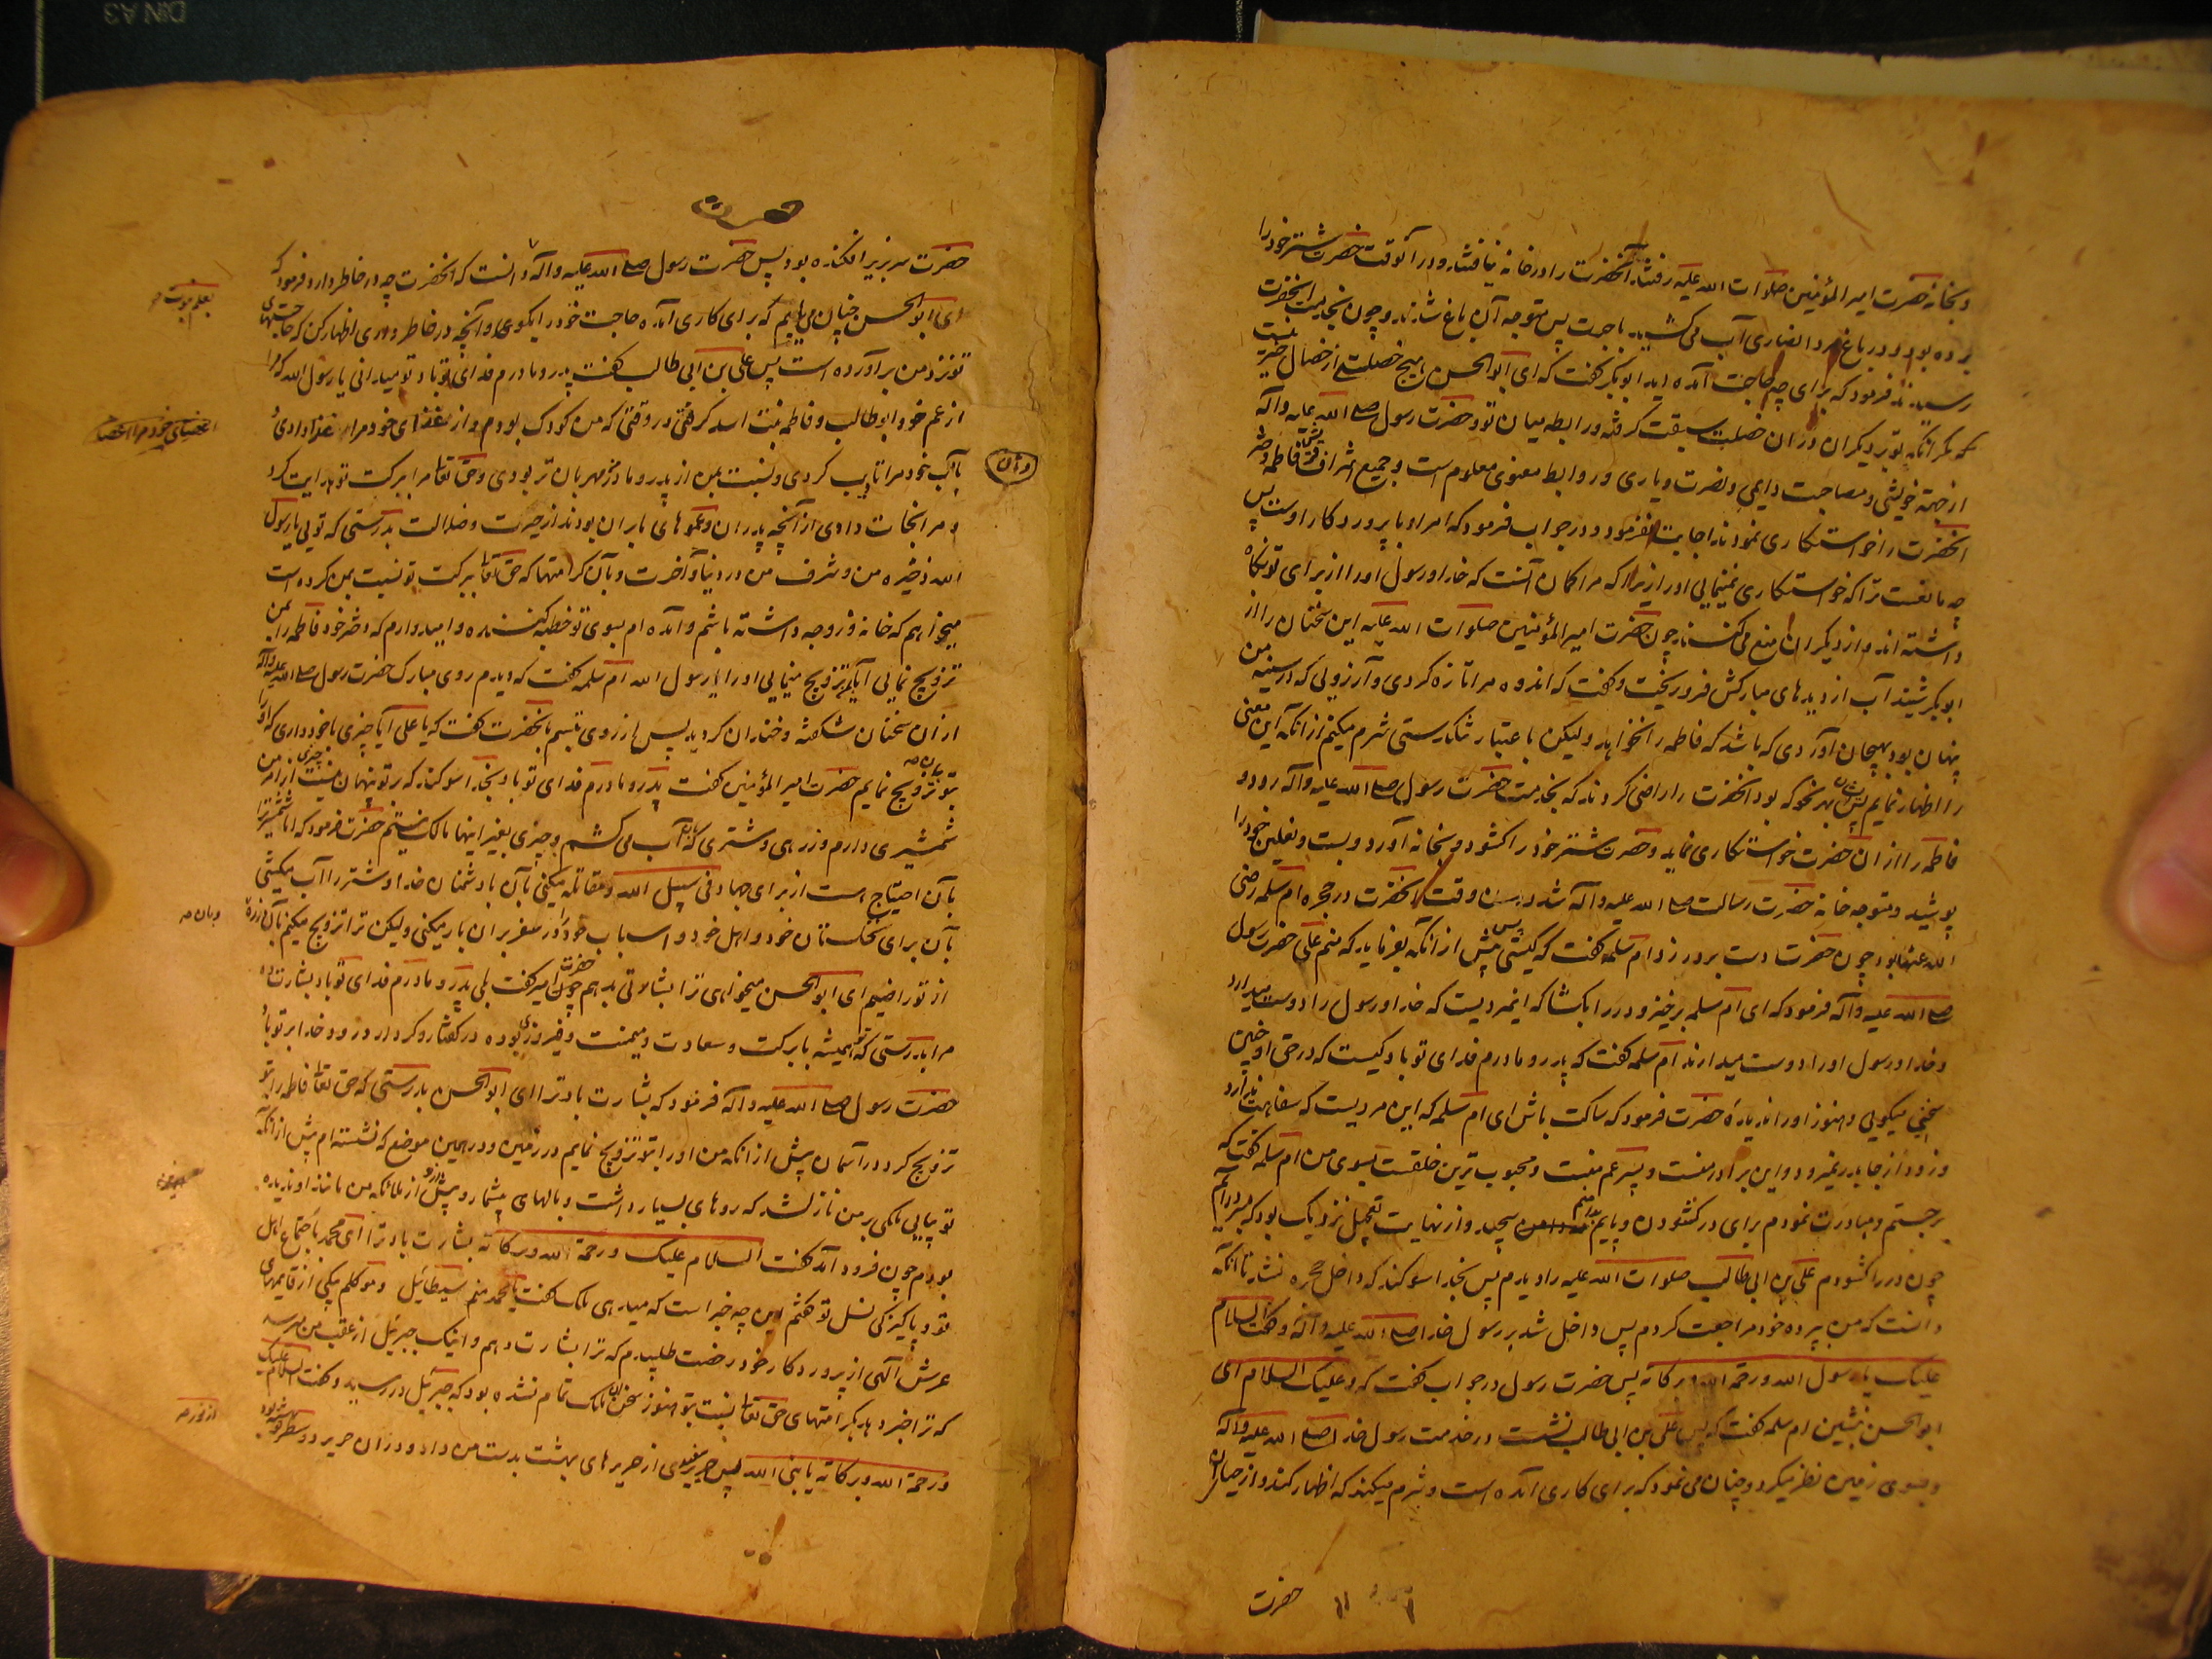 و بخانه حضرت امیر المؤمنین صلوات الله علیه رفتند آنحضرت را در خانه نیافتند و در آنوقت حضرت شتر خود را
برده بود و در باغ مرد انصاری آب می کشید باجرت پس متوجه آن باغ شدند و چون بخدمت آنحضرت
رسیدند فرمود که برای چه حاجت آمده اید ابو بکر گفت که ای ابو الحسن هیچ خصلتی از خصال خیر نیست
مگر آنکه تو بر دیگران در آن خصلت سبقت گرفته و رابطه میان تو و حضرت رسول صلی الله علیه وآله
از جهة خویشی و مصاحبت دایمی و نصرت و یاری و روابط معنوی معلوم است و جمیع اشراف قریش فاطمه دختر
آنحضرت را خواستکاری نمودند اجابت نفرمود و در جواب فرمود که امر او با پروردکار اوست پس
چه مانعست ترا که خواستکاری نمینمایی او را زیرا که مرا کمان آنست که خدا و رسول او را از برای تو نکاه
داشته اند و از دیگران منع می کنند چون حضرت امیر المؤمنین صلوات الله علیه این سخنان را از
ابو بکر شنید آب از دیدهای مبارکش فرو ریخت و گفت که اندوه مرا تازه کردی و آرزویی که در سینه من
پنهان بود بهیجان آوردی که باشد که فاطمه را نخواهد ولیکن باعتبار تنکدستی شرم میکنم از آنکه این معنی
را اظهار نمایم پس ایشان بهر نحو که بود آنحضرت را راضی کردند که بخدمت حضرت رسول صلی الله علیه وآله رود و
فاطمه را از آن حضرت خواستکاری نماید و حضرت شتر خود را کشود و بخانه آورد و بست و نعلین خود را
پوشید و متوجه خانه حضرت رسالت صلی الله علیه وآله شد در آن وقت آنحضرت در حجره ام سلمه رضی
الله عنها بود چون حضرت دست بر در زد ام سلمه گفت که کیستی پس پیش از آنکه بفرماید که منم علی حضرت رسول
صلی الله علیه وآله فرمود که ای ام سلمه برخیز و در را بکشا که اینمردیست که خدا و رسول را دوست میدارد
و خدا و رسول او را دوست میدارند ام سلمه گفت که پدر و مادرم فدای تو باد کیست که در حق او چنین
سخنی میکویی و هنوز او را ندیدهٔ حضرت فرمود که ساکت باش ای ام سلمه که این مردیست که سفاهت ندارد
و زود از جا بدر نمیرود و این برادر منست و پسر عم منست و محبوب ترین خلقست بسوی من ام سلمه گفت که
برجستم و مبادرت نمودم برای در کشودن و پایم بدامنم پیچید و از نهایت تعجیل نزدیک بود که بسر درآیم
چون در را کشودم علی بن ابی طالب صلوات الله علیه را دیدم پس بخدا سوکند که داخل حجره نشد تا آنکه
دانست که من بپرده خود مراجعت کردم پس داخل شد بر رسول خدا صلی الله علیه وآله و گفت السلام
علیک یا رسول الله ورحمة الله وبرکاته پس حضرت رسول در جواب گفت که وعلیک السلام ای
ابو الحسن بنشین ام سلمه گفت که پس علی بن ابی طالب نشست در خدمت رسول خدا صلی الله علیه وآله
و بسوی زمین نظر میکرد و چنان می نمود که برای کاری آمده است و شرم میکند که اظهار کند و از حیا آن
حضرت
حضرت
حضرت سر بزیر افکنده بود پس حضرت رسول صلی الله علیه وآله دانست که آنحضرت چه در خاطر دارد فرمود که
ای ابو الحسن چنان می یابم که برای کاری آمده حاجت خود را بکوی و آنچه در خاطر داری اظهار کن که حاجتهای
بعلم نبوت
تو نزد من برآورده است پس علی بن ابی طالب گفت پدر و مادرم فدای تو باد تو میدانی یا رسول الله که مرا
از عم خود ابو طالب و فاطمه بنت اسد کرفتی در وقتی که من کودک بودم و از غذای خود مرا غذا دادی
بآداب خود مرا تادیب کردی و نسبت بمن از پدر و مادر مهربان تر بودی و حق تعالی مرا ببرکت تو هدایت کرد
و مرا نجات دادی از آنچه پدران و عموهای ما بر آن بودند از حیرت و ضلالت بدرستی که تویی یا رسول
الله ذخیره من و شرف من در دنیا و آخرت و بآن کرامتها که حق تعالی ببرکت تو نسبت بمن کرده است
میخواهم که خانه و زوجه داشته باشم و آمده ام بسوی تو خطبه کننده و امیدوارم که دختر خود فاطمه را بمن
تزویج نمایی آیا تزویج مینمایی او را یا رسول الله ام سلمه گفت که دیدم روی مبارک حضرت رسول صلی الله علیه وآله
از آن سخنان شکفته و خندان کردید پس از روی تبسم بآنحضرت گفت که یا علی آیا چیزی با خود داری که او را
بتو تزویج نمایم حضرت امیر المؤمنین گفت پدر و مادرم فدای تو باد بخدا سوکند که بر تو پنهان نیست چیزی از امر من
شمشیری دارم و زرهی و شتری که بآن آب می کشم و چیزی بغیر اینها مالک نیستم حضرت فرمود که اما شمشیر ترا
بآن احتیاج است از برای جهاد فی سبیل الله و مقاتله میکنی بآن با دشمنان خدا و شتر را آب میکشی
بآن برای نخلستان خود و اهل خود و اسباب خود را در سفر بر آن بار میکنی ولیکن ترا تزویج میکنم بآن زره
از تو راضیم ای ابو الحسن میخواهی ترا بشارتی بدهم چون حضرت امیر گفت بلی پدر و مادرم فدای تو باد بشارت ده
مرا بدرستی که تو همیشه با برکت و سعادت و میمنت و فیروزی بوده در گفتار و کردار درود خدا بر تو باد
حضرت رسول صلی الله علیه وآله فرمود که بشارت باد ترا ای ابو الحسن بدرستی که حق تعالی فاطمه را بتو
تزویج کرد در آسمان پیش از آنکه من او را بتو تزویج نمایم در زمین و در همین موضع که نشسته ام پیش از آنکه
تو بیایی ملکی بر من نازلشد که روهای بسیار داشت و بالهای بیشمار و پیش از او از ملائکه من مانند او ندیده
بودم چون فرود آمد گفت السلام علیک ورحمة الله وبرکاته بشارت باد ترا ای محمد باجتماع اهل
تو و پاکیزکی نسل تو گفتم این چه خبر است که میدهی ملک گفت یا محمد منم سیطائیل و موکلم بیکی از قایمهای
عرش الهی از پروردکار خود رخصت طلبیدم که ترا بشارت دهم و اینک جبرئیل از عقب من میرسد
که ترا خبر دهد بکرامتهای حق تعالی نسبت بتو هنوز سخن آن ملک تمام نشده بود که جبرئیل در رسید و گفت السلام علیک
ورحمة الله وبرکاته یا نبی الله پس حریر سفیدی از حریرهای بهشت بدست من داد و در آن حریر دو سطر نوشته بود
از نور